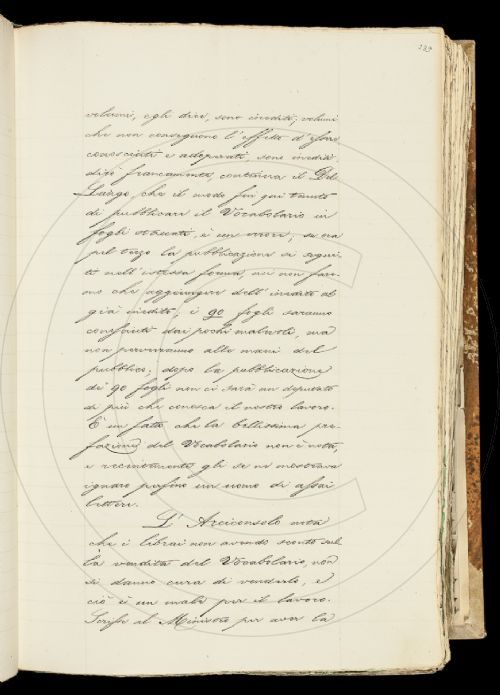 229
volumi, egli dice, sono inediti; volumi
che non conseguono l'effetto d'esser
conosciuti e adoperati, sono inediti.
dirò francamente, continua il Del
Lungo che il modo fin qui tenuto
di pubblicare il Vocabolario in
fogli staccati, è un errore; se ora
pel terzo la pubblicazione si segui-
tò nell'istessa forma, noi non fare-
mo che aggiungere dell'inedito al
già inedito; i 90 fogli saranno
conosciuti dai pochi malevoli, ma
non perverranno alle mani del
pubblico; dopo la pubblicazione
di 90 fogli non ci sarà un deputato
di più che conosca il nostro lavoro.
È un fatto che la bellissima pre-
fazione del Vocabolario non è nota,
e recentemente gli se ne mostrava
ignaro perfino un uomo di assai
lettere.
L'Arciconsolo nota
che i librai non avendo sconto sul-
la vendita del Vocabolario, non
si danno cura di venderlo, e
ciò è un male per il lavoro.
Scrisse al Ministero per aver la